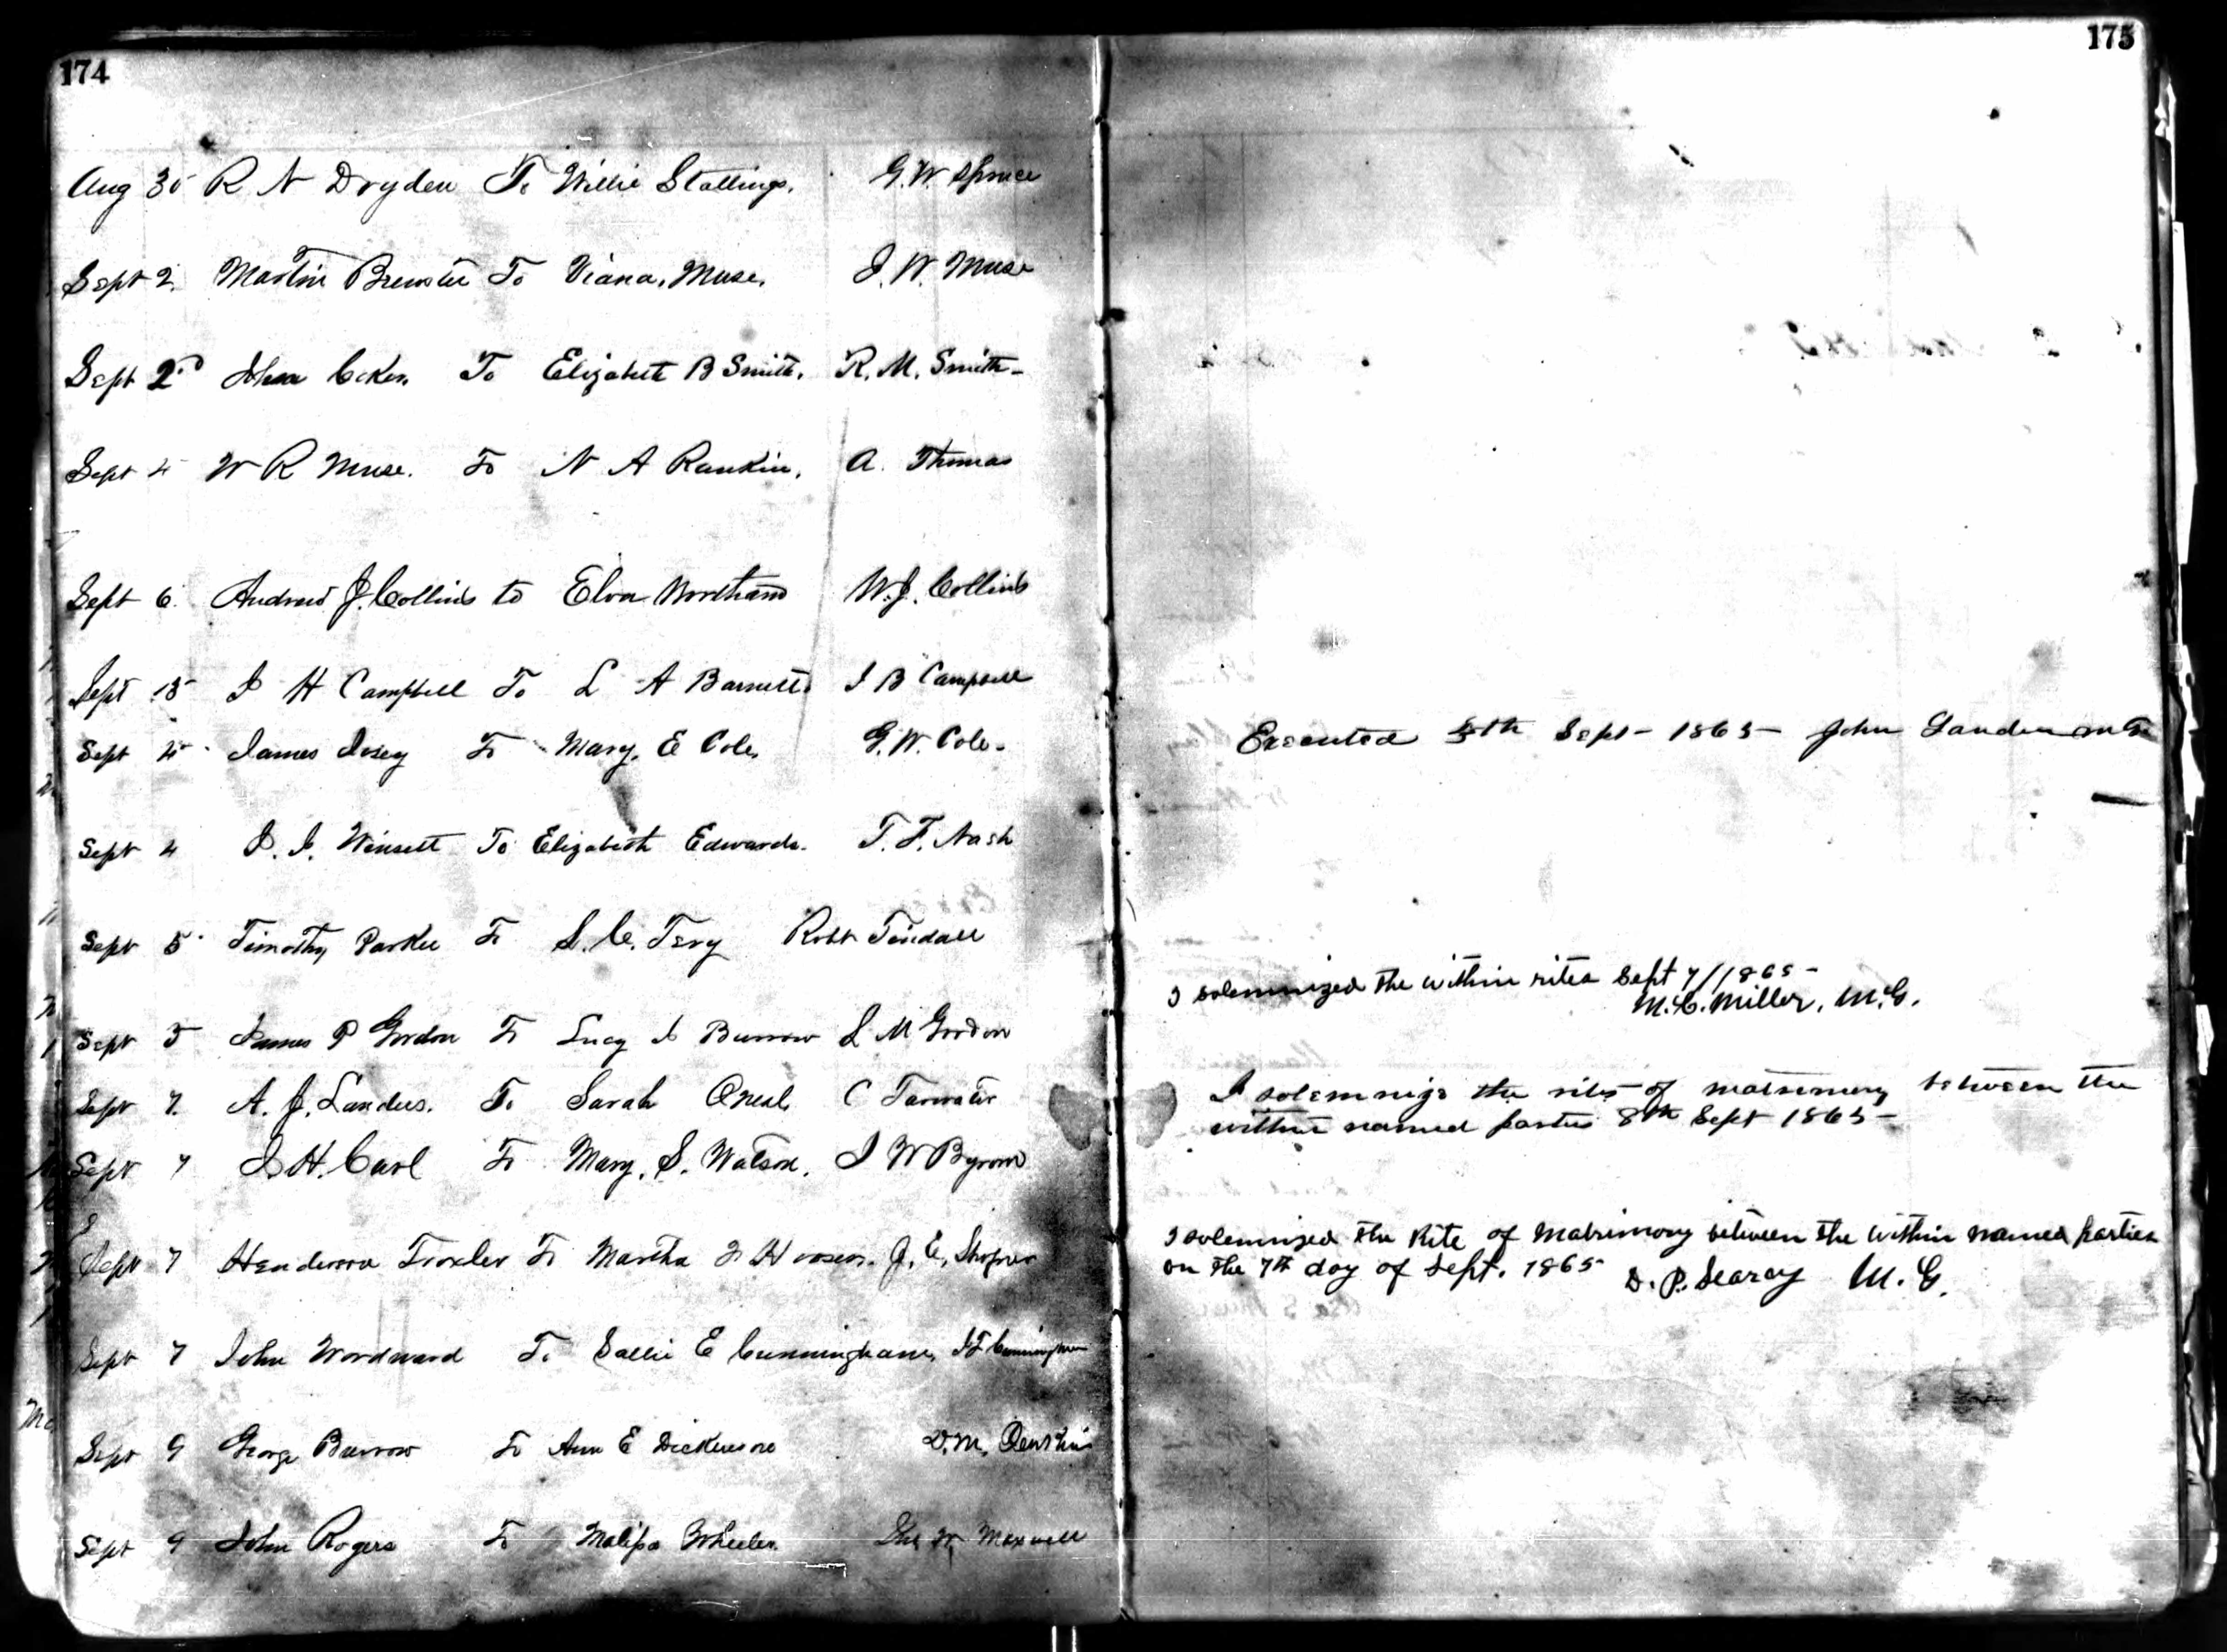 174
Aug 30 R N Dryden To Willie Stallings. G. W. Spruce
Sept 2. Martin Brewster To Viana. Muse. J. W. Muse
Sept 2nd John To Elizabeth B Smith. R. M. Smith
Sept 4 W R Muse. To N A Rankin. A. Thomas
Sept 6. Andrew J. Collins to W. J. Collins
Sept 15 J H Campbell To L A Barnett. J B Campbell
Sept 4 James To Mary. E Cole. G. W. Cole.
Sept 4 J. J. Winsett To Elizabeth Edwards. T. F. Nash
Sept 5 Timothy Parker To S. C. Terry Robt Tindall
Sept 5 James P Gordon To Lucy J Burrow L M Gordon
Sept 7. A. J. Landers. To Sarah Oneal C Tarwater
Sept 7 J. H. Carl To Mary. S. Watson. J W Byrom
Sept 7 Henderson Troxler To Martha J. E.
Sept 7 John Woodward To Sallie E Cunningham, J F Cunningham
Sept 9 George Burrow To Ann E Dickerson D. M.
Sept 9 John Rogers To Malissa Wheeler. W. Maxwell
175
Executed 5th Sept 1865 John Landers M G
I solemnized the within rites Sept 7/1865
M. C. Miller, M. G.
I solemnize the rites of matrimony between the
within named parties 8th Sept 1865
I solemnized the Rite of Matrimony between the within named parties
on the 7th day of Sept. 1865 D. P. Searcy M. G.